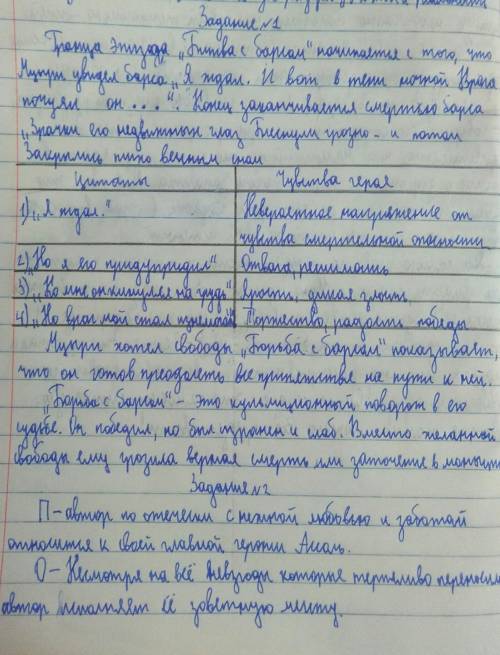 Задание №1
Граница эпизода „Битва с барсом" начинается с того, что
Мцыри увидел барса „Я ждал. И вот в тени ночной Врага
почуял он ...". Конец заканчивается смертью барса
„Зрачки его недвижных глаз Блеснули грозно - и потом
Закрылись тихо вечным сном
Цитаты Чувства героя
1) „Я ждал." Невероятное напряжение от
чувства смертельной опасности
2) „Но я его предупредил" Отвага, решимость
3) „Ко мне он кинулся на грудь" ярость, дикая злость
4) „Но враг мой стал изнемогать" Торжество, радость победы
Мцыри хотел свободы „Борьба с барсом" показывает,
что он готов преодолеть все препятствие на пути к ней.
„Борьба с барсом" - это кульмиционный поворот в его
судьбе. Он победил, но был изранен и слаб. Вместо желанной
свободы ему грозила верная смерть или заточение в монастыр
Задание №2
П - автор по отечески с нежной любовью и заботай
относится к своей главной героини Ассоль.
О - Несмотря на всё невзгоды которые терпеливо переносим
автор исполняет её заветную мечту.